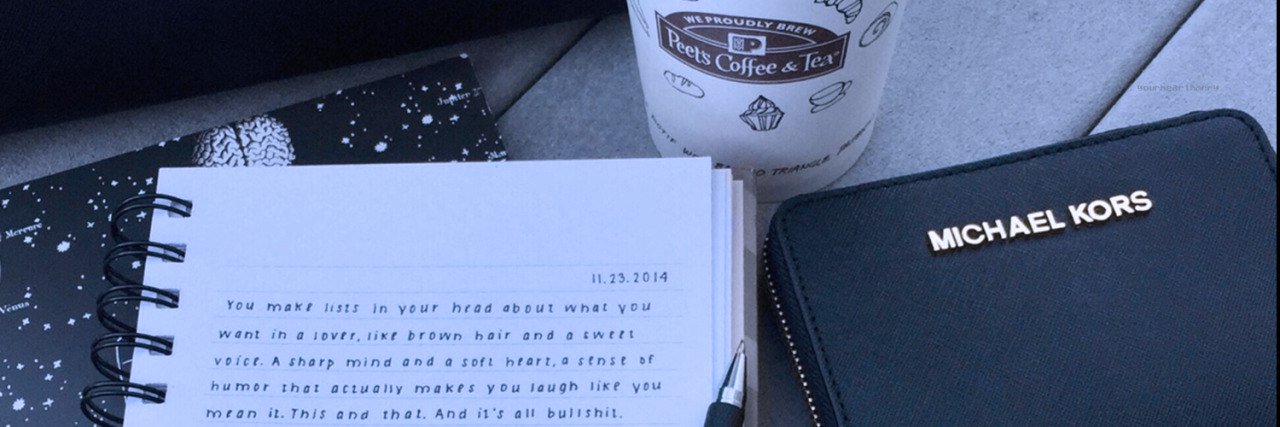 WE PROUDLY BREW
Peet's Coffee & Tea
yourhearthornry
Jupiter
Mercure
Vénus
MICHAEL KORS
11.23.2014
You make lists in your head about what you
want in a lover, like brown hair and a sweet
voice. A sharp mind and a soft heart, a sense of
humor that actually makes you laugh like you
mean it. This and that. And it's all bullshit.
TRIANGLE